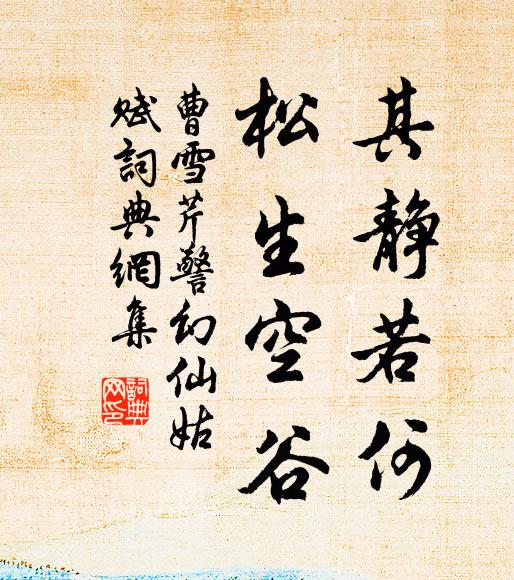 其静若何
松生空谷
曹雪芹警幻仙姑
赋詞典網集
詞典
网印